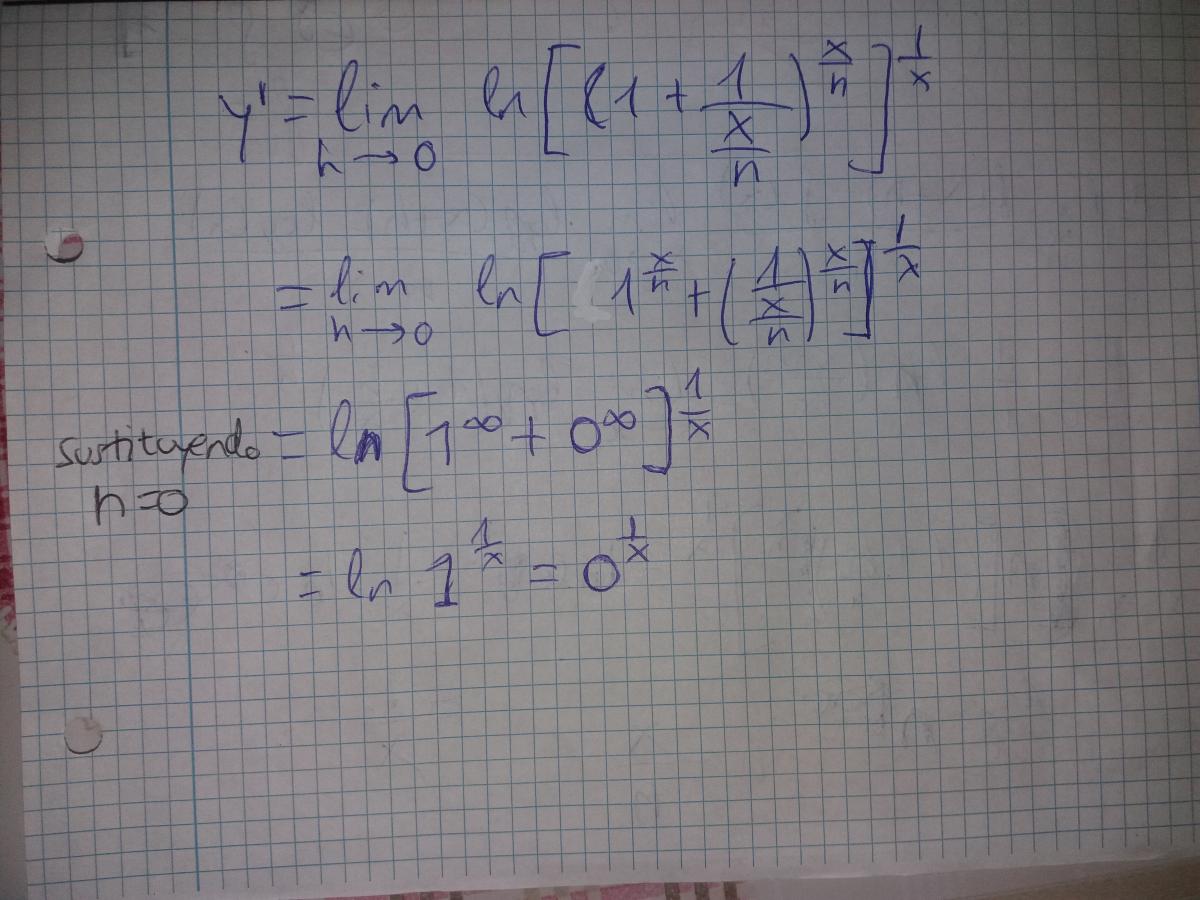 y' = lim_{h→0} ln[(1 + 1/(x/h))^{x/h}]^{1/x}
= lim_{h→0} ln[1^{x/h} + (1/(x/h))^{x/h}]^{1/x}
sustituyendo h=0 = ln[1^∞ + 0^∞]^{1/x}
= ln 1^{1/x} = 0^{1/x}